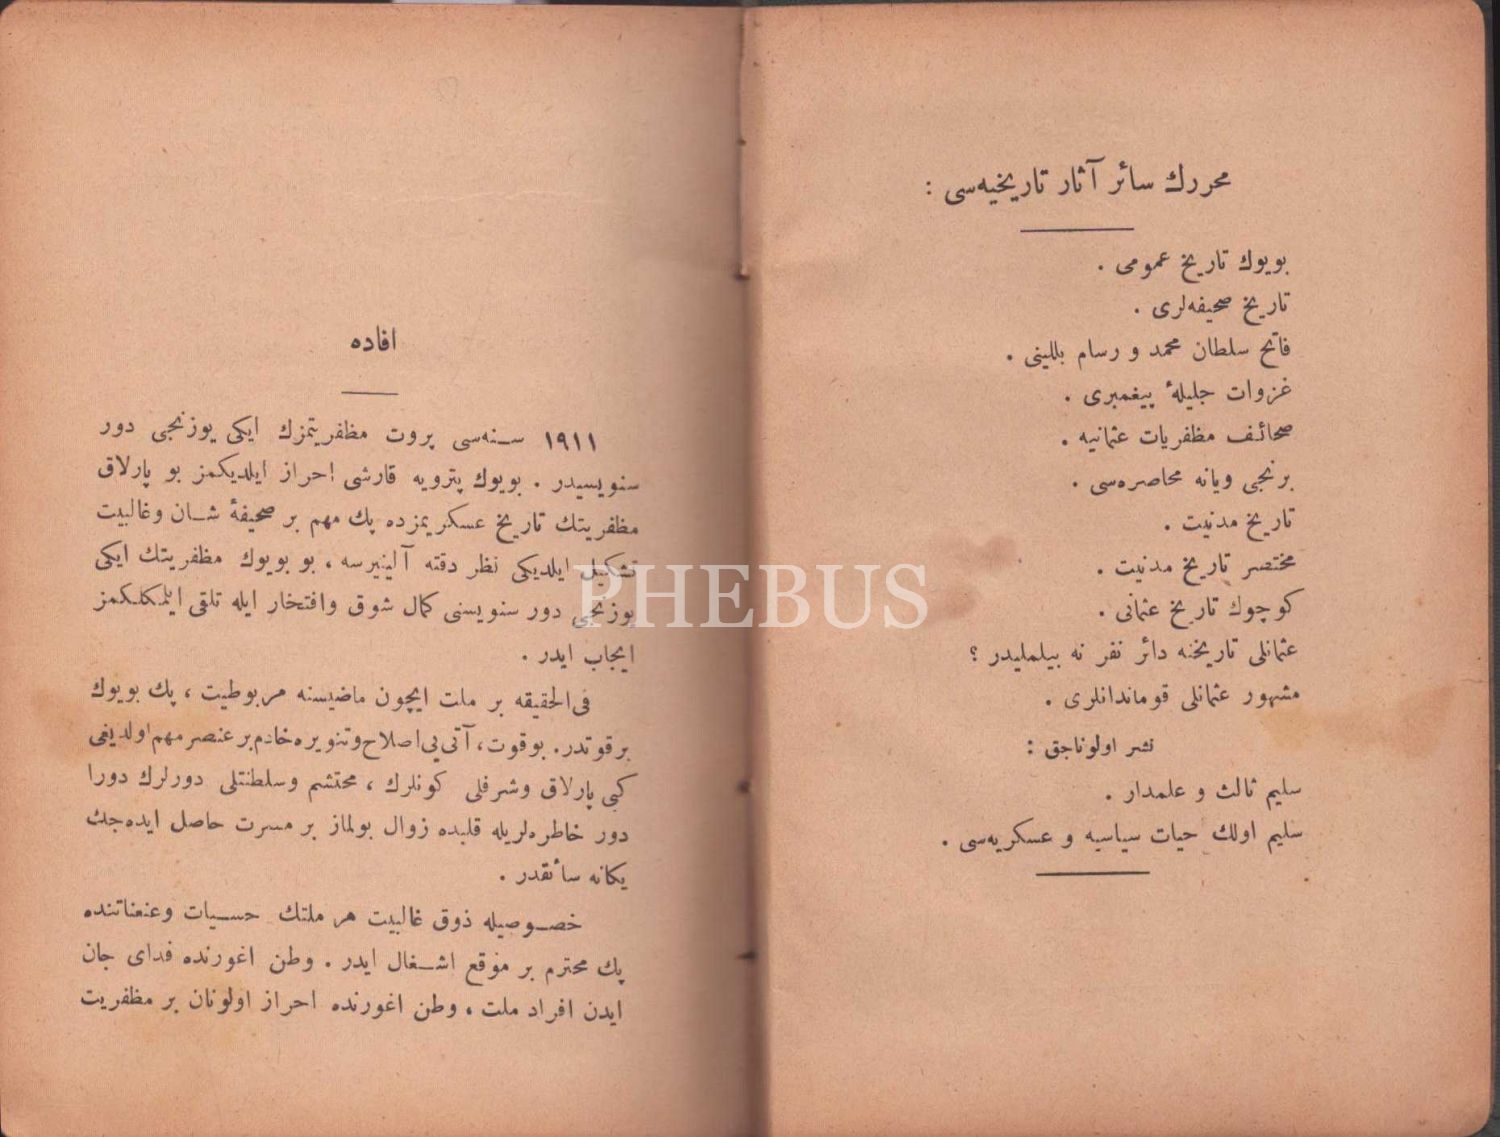 محررك سائر آثار تاريخيه‌سی :
بويوك تاريخ عمومی .
تاريخ صحيفه‌لری .
فاتح سلطان محمد و رسام بللينی .
غزوات جليلهٔ پيغمبری .
صحائف مظفريات عثمانيه .
برنجی ويانه محاصره‌سی .
تاريخ مدنيت .
مختصر تاريخ مدنيت .
كوچوك تاريخ عثمانی .
عثمانلی تاريخنه دائر نفر نه بيلمليدر ؟
مشهور عثمانلی قوماندانلری .
نشر اولوناجق :
سليم ثالث و علمدار .
سليم اولك حيات سياسيه و عسكريه‌سی .
افاده
١٩١١ سنه‌سی پروت مظفريتمزك ايكی يوزنجی دور
سنويسيدر . بويوك پترويه قارشی احراز ايلديكمز بو پارلاق
مظفريتك تاريخ عسكريمزده پك مهم بر صحيفهٔ شان وغالبيت
تشكيل ايلديكی نظر دقته آلينيرسه ، بو بويوك مظفريتك ايكی
يوزنجی دور سنويسنی كمال شوق وافتخار ايله تلقی ايلمكلكمز
ايجاب ايدر .
فی‌الحقيقه بر ملت ايچون ماضيسنه مربوطيت ، پك بويوك
برقوتدر. بوقوت، آتی‌يی اصلاح وتنويره خادم بر عنصر مهم اولديغی
كبی پارلاق وشرفلی كونلرك ، محتشم وسلطنتلی دورلرك دورا
دور خاطره‌لريله قلبده زوال بولماز بر مسرت حاصل ايده‌جك
يكانه سائقدر .
خصوصيله ذوق غالبيت هر ملتك حسيات وعنعناتنده
پك محترم بر موقع اشغال ايدر . وطن اغورنده فدای جان
ايدن افراد ملت ، وطن اغورنده احراز اولونان بر مظفريت
PHEBUS